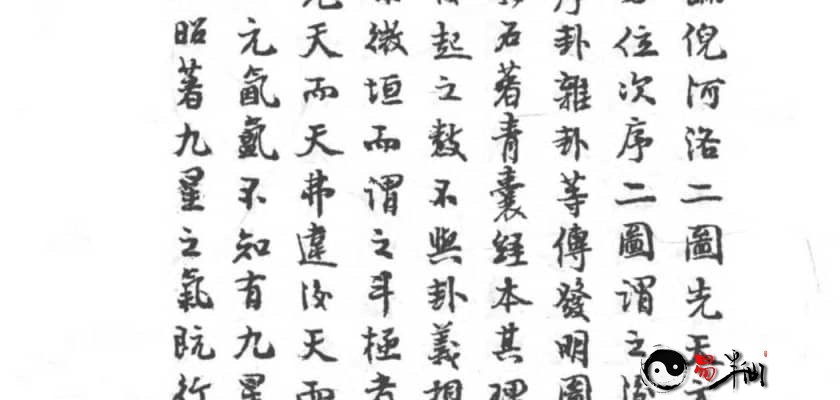 倪河洛二圖先天
位次序二圖謂之
序卦雜卦等傳發明圖
石著青囊經本其理
起之數不與卦義相
微垣而謂之斗極者
先天而天弗違後天而
元氤氳不知有九星
昭著九星之氣既行
易半仙